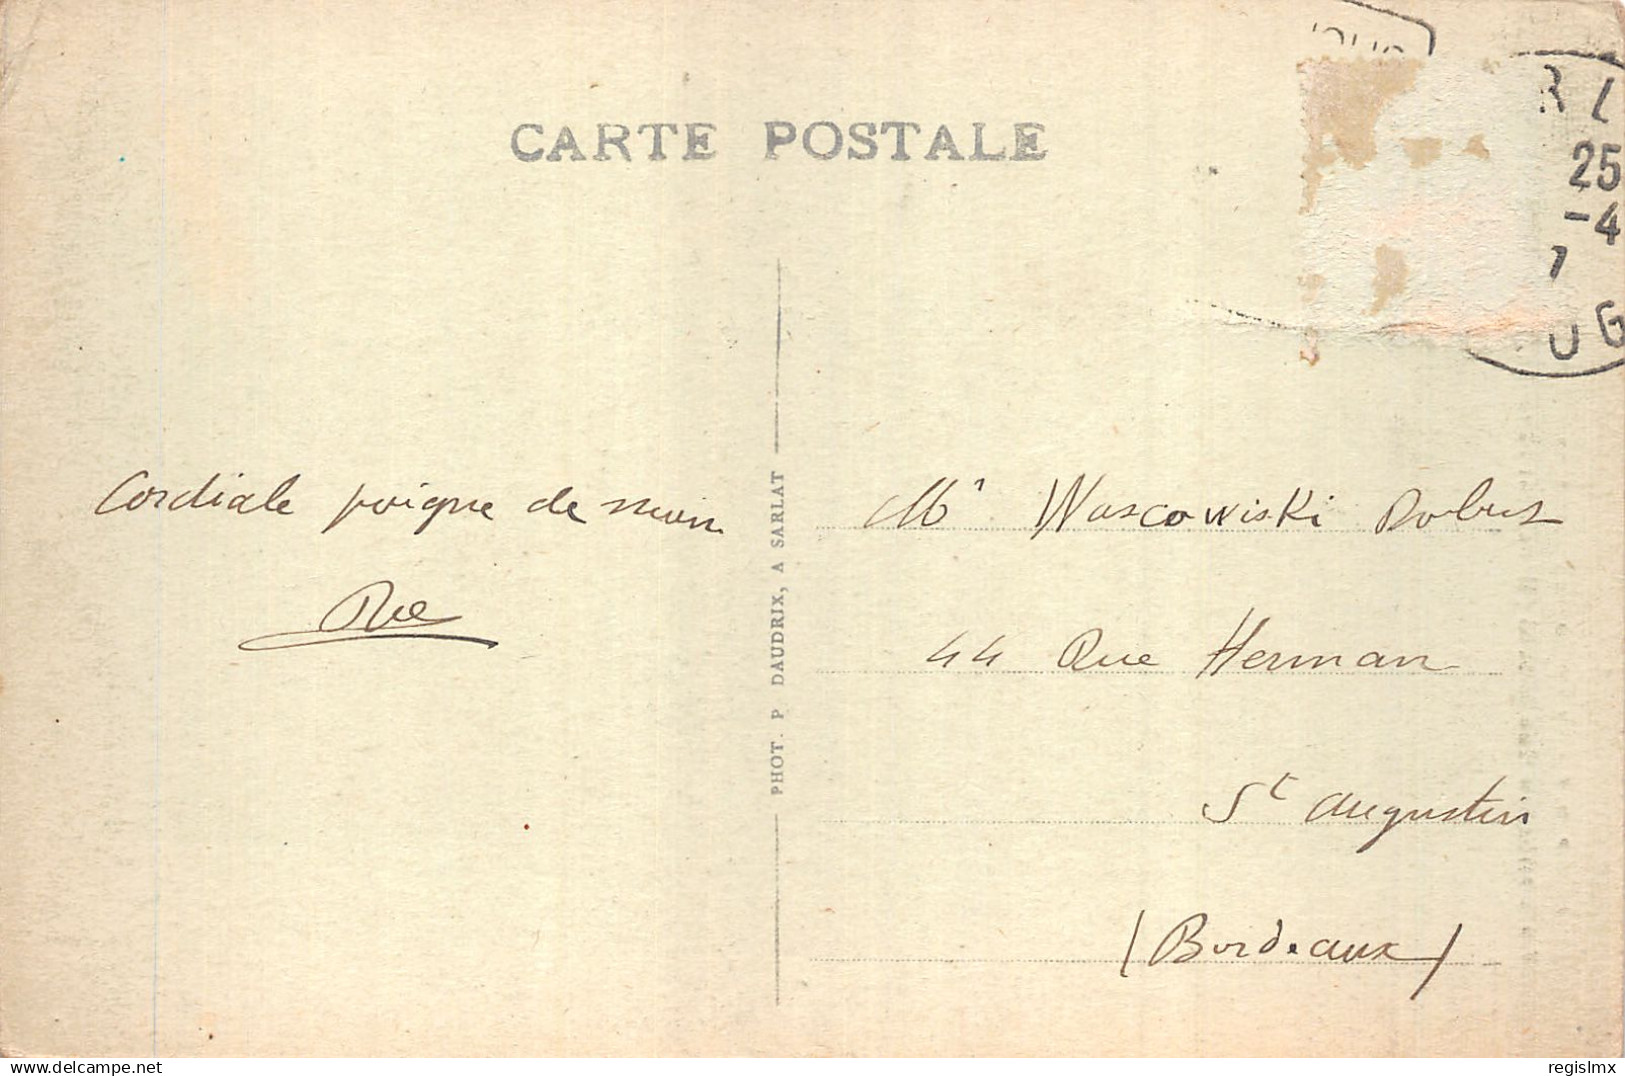 CARTE POSTALE
R L
25
-4
7
UG
Cordiale poigne de main
PHOT. P DAUDRIX, A SARLAT
Mr Wascowiski
44 Rue Herman
St Augustin
(Bordeaux)
delcampe.net
regislmx